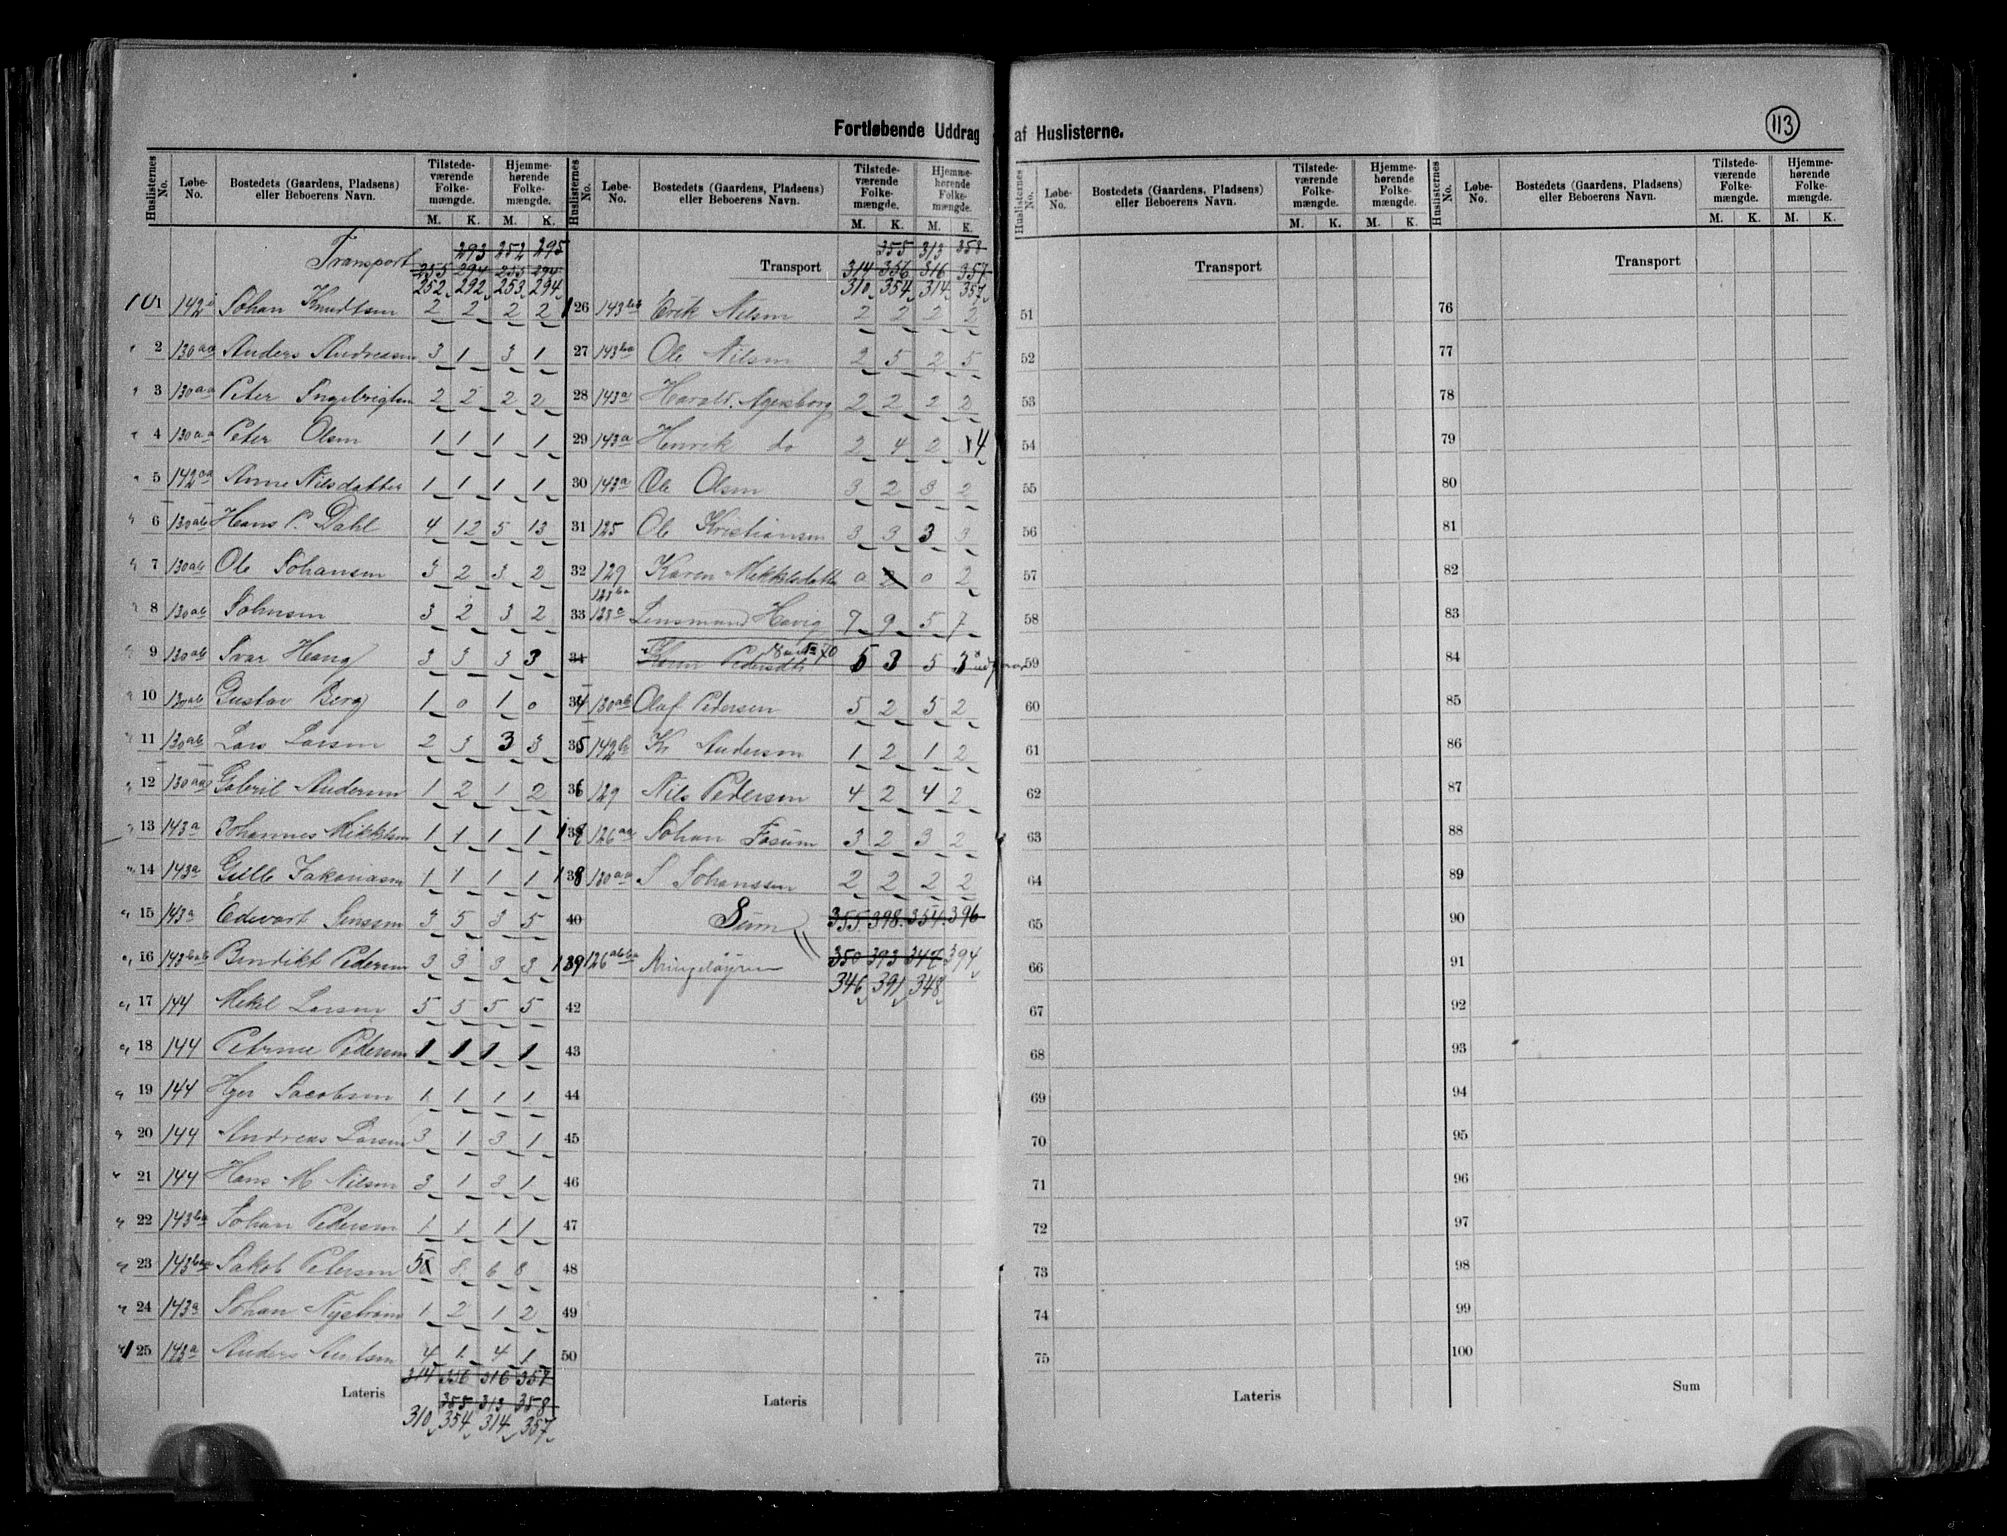 Fortløbende Uddrag af Huslisterne.
113
Huslisternes No. Løbe-No. Bostedets (Gaardens, Pladsens) eller Beboerens Navn. Tilstedeværende Folkemængde. M. K. Hjemmehørende Folkemængde. M. K.
Transport 293 252 295
255 294 255 294
252 292 253 294
101 142 Johan Knudtsen 2 2 2 2
" 2 130aa Anders Andreasen 3 1 3 1
" 3 130aa Peter Ingebrigtsen 2 2 2 2
" 4 130aa Peter Olsen 1 1 1 1
" 5 142aa Anne Nilsdatter 1 1 1 1
" 6 130ab Hans P. Dahl 4 12 5 13
" 7 130ab Ole Johansen 3 2 3 2
" 8 130ab Johnsen 3 2 3 2
" 9 130ab Ivar Haug 3 3 3 3
" 10 130ab Gustav Berg 1 0 1 0
" 11 130ab Lars Larsen 2 3 3 3
" 12 130aa Gabriel Andersen 1 2 1 2
" 13 143a Johannes Mikkelsen 1 1 1 1
" 14 143a 1 1 1 1
" 15 143a Edevart Jenssen 3 5 3 5
" 16 143bab Bendikt Pedersen 3 3 3 3
" 17 144 Mekel Larsen 5 5 5 5
" 18 144 Petrine Pedersen 1 1 1 1
" 19 144 Jacobsen 1 1 1 1
" 20 144 Andreas Larsen 3 1 3 1
" 21 144 Hans M Nilsen 3 1 3 1
" 22 143ba Johan Pedersen 1 1 1 1
" 23 143ba Jakob Petersen 5 8 6 8
" 24 143a Johan Nystrøm 1 2 1 2
125 143a Anders 4 1 4 1
314 356 316 357
Lateris 355 313 358
310 354 314 357
Huslisternes No. Løbe-No. Bostedets (Gaardens, Pladsens) eller Beboerens Navn. Tilstedeværende Folkemængde. M. K. Hjemmehørende Folkemængde. M. K.
355 313 358
Transport 314 356 316 357
310 354 314 357
126 143bb Erik Nilsen 2 2 2 2
27 143ba Ole Nilsen 2 5 2 5
28 143a Haralt. Agersborg 2 2 2 2
29 143a Henrik do 2 4 2 4
30 143a Ole Olsen 3 2 3 2
31 125 Ole Kristiansen 3 3 3 3
32 129 Karen Mikkelsdatter 0 2 0 2
33 128a Lensmand Havig 7 9 5 7
34 Karen Pedersdtr 5 3 5 3
34 130ab Olaf Pedersen 5 2 5 2
35 142b Kr Andersen 1 2 1 2
36 129 Nils Pedersen 4 2 4 2
126aa Johan Fosum 3 2 3 2
138 130aa J Johanssen 2 2 2 2
40 Sum 355 398 354 396
139 126abba 350 393 347 394
346 391 348
42
43
44
45
46
47
48
49
50
Lateris
Huslisternes No. Løbe-No. Bostedets (Gaardens, Pladsens) eller Beboerens Navn. Tilstedeværende Folkemængde. M. K. Hjemmehørende Folkemængde. M. K.
Transport
51
52
53
54
55
56
57
58
59
60
61
62
63
64
65
66
67
68
69
70
71
72
73
74
75
Lateris
Huslisternes No. Løbe-No. Bostedets (Gaardens, Pladsens) eller Beboerens Navn. Tilstedeværende Folkemængde. M. K. Hjemmehørende Folkemængde. M. K.
Transport
76
77
78
79
80
81
82
83
84
85
86
87
88
89
90
91
92
93
94
95
96
97
98
99
100
Sum